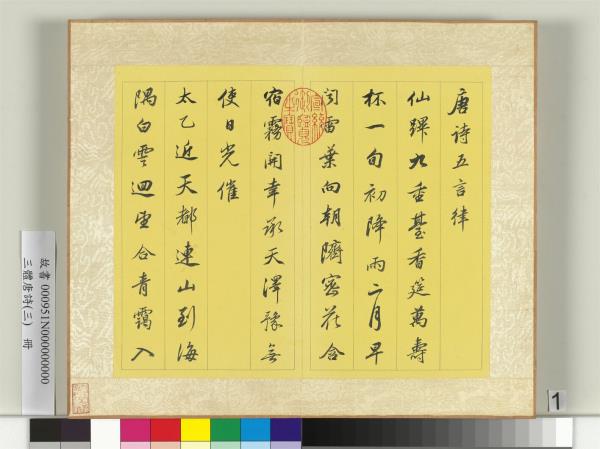 唐詩五言律
仙蹕九重臺香筵萬壽
杯一旬初降雨二月早
聞雷葉向朝隮密花含
宿霧開幸承天澤豫無
使日光催
太乙近天都連山到海
隅白雲迴望合青靄入
故書 000951N000000000
三體唐詩(三) 冊
1